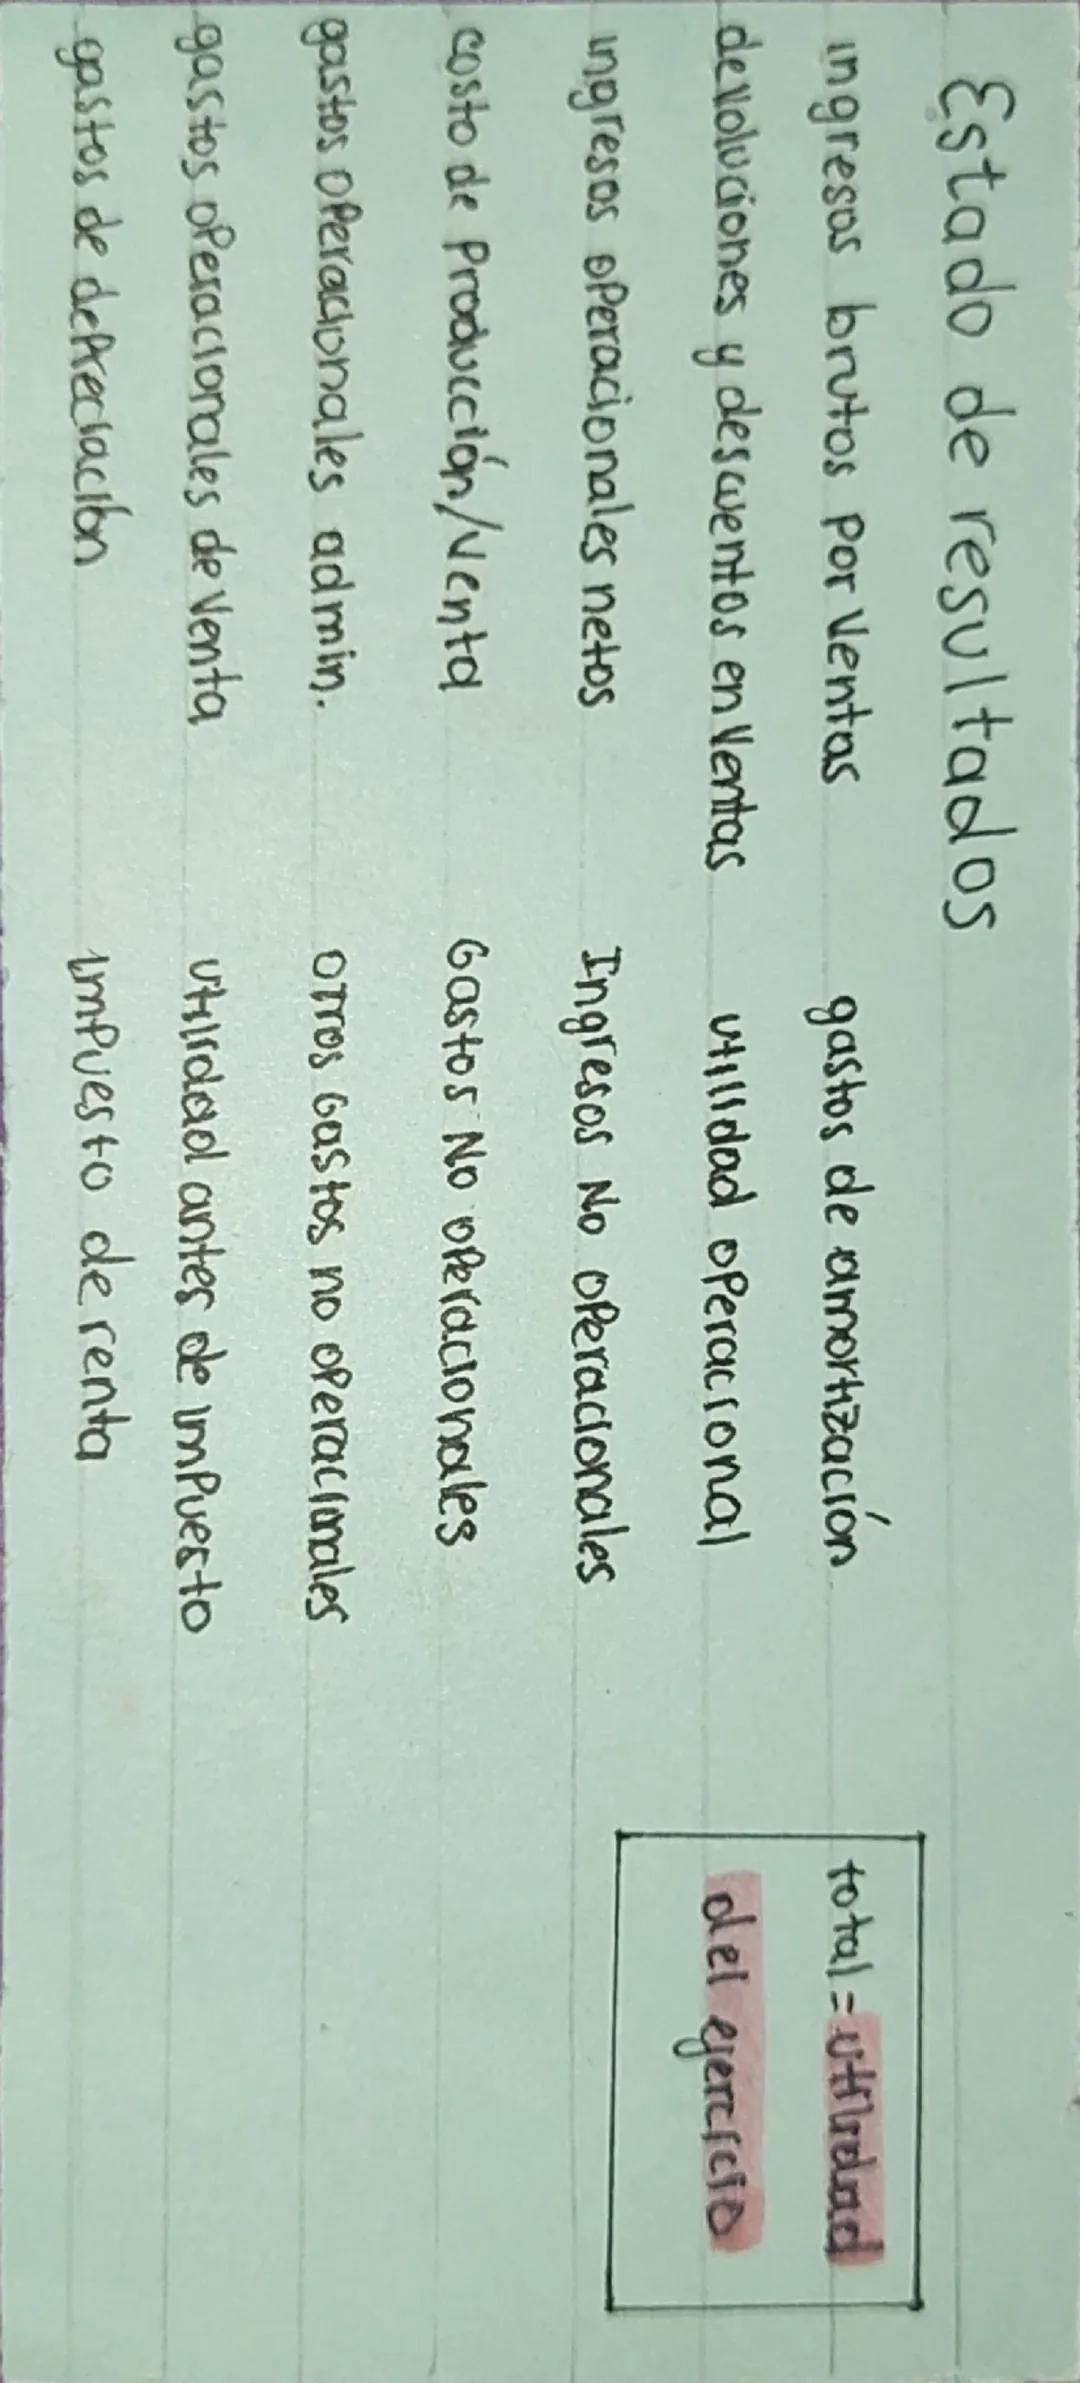 Estado de resultados
ingresos brutos por ventas
devoluciones y descuentos en ventas
ingresos operacionales netos
costo de producción/venta
gastos operacionales admin.
gastos operacionales de venta
gastos de depreciación
gastos de amortización
utilidad operacional
Ingresos No operacionales
Gastos No operacionales
otros Gastos no operacionales
utilidad antes de impuesto
impuesto de renta
total = utilidad
del ejercicio